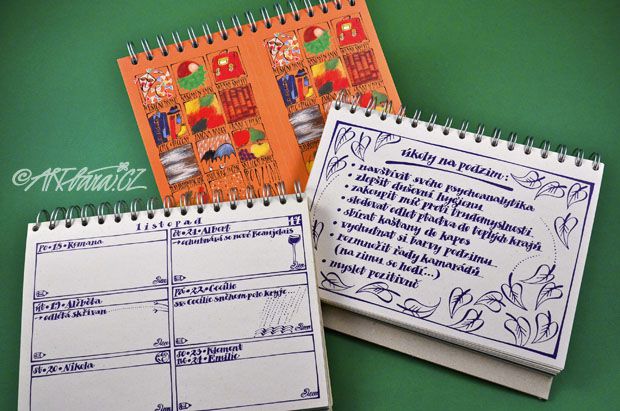 úkoly na podzim:
• navštívit svého psychoanalytika
• zlepšit duševní hygienu
• zakoupit míč proti trudomyslnosti
• sledovat odlet ptactva do teplých krajů
• sbírat kaštany do kapes
• vychutnat si barvy podzimu...
• rozmnožit řady kamarádů...
(na zimu se hodí...)
• myslet pozitivně
listopad
47
po•18•Romana
út•19•Alžběta
→odlétá skřivan
st•20•Nikola
čt•21•Albert
→ochutnává se nové Beaujolais
pá•22•Cecílie
sv. Cecílie sněhem pole kryje...
so•23•Klement
ne•24•Emílie